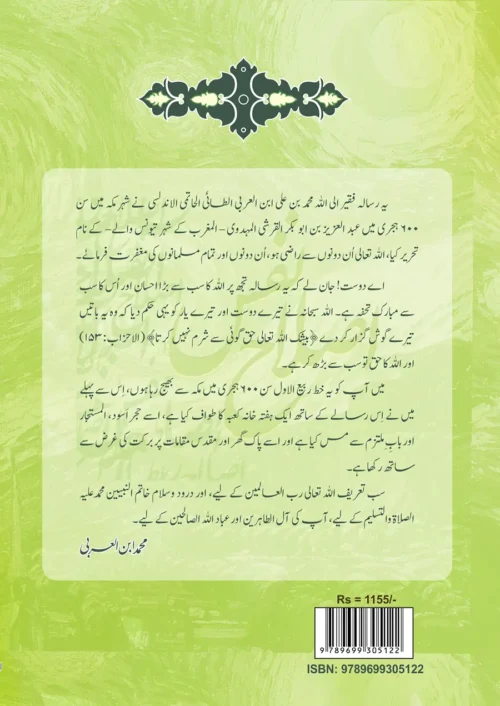 یہ رسالہ فقیر الی اللہ محمد بن علی ابن العربی الطائی الحاتمی الاندلسی نے شہر مکہ میں سن
۶۰۰ ہجری میں عبد العزیز بن ابو بکر القرشی المہدوی – المغرب کے شہر تیونس والے – کے نام
تحریر کیا، اللہ تعالی اُن دونوں سے راضی ہو، اُن دونوں اور تمام مسلمانوں کی مغفرت فرمائے۔
اے دوست! جان لے کہ یہ رسالہ تجھ پر اللہ کا سب سے بڑا احسان اور اُس کا سب
سے مبارک تحفہ ہے۔ اللہ سبحانہ نے تیرے دوست اور تیرے یار کو یہی حکم دیا کہ وہ یہ باتیں
تیرے گوش گزار کر دے ﴿بیشک اللہ تعالی حق گوئی سے شرم نہیں کرتا﴾ (الاحزاب: ۱۵۳)
اور اللہ کا حق تو سب سے بڑھ کر ہے۔
میں آپ کو یہ خط ربیع الاول سن ۶۰۰ ہجری میں مکہ سے بھیج رہا ہوں، اِس سے پہلے
میں نے اِس رسالے کے ساتھ ایک ہفتہ خانہ کعبہ کا طواف کیا ہے، اسے حجر اَسود، المستجار
اور بابِ ملتزم سے مس کیا ہے اور اسے پاک گھر اور مقدس مقامات پر برکت کی غرض سے
ساتھ رکھا ہے۔
سب تعریف اللہ تعالی رب العالمین کے لیے، اور درود و سلام خاتم النبیین محمد علیہ
الصلاۃ والتسلیم کے لیے، آپ کی آل الطاہرین اور عباد اللہ الصالحین کے لیے۔
محمد ابن العربی
Rs = 1155/-
9 789699 305122
ISBN: 9789699305122